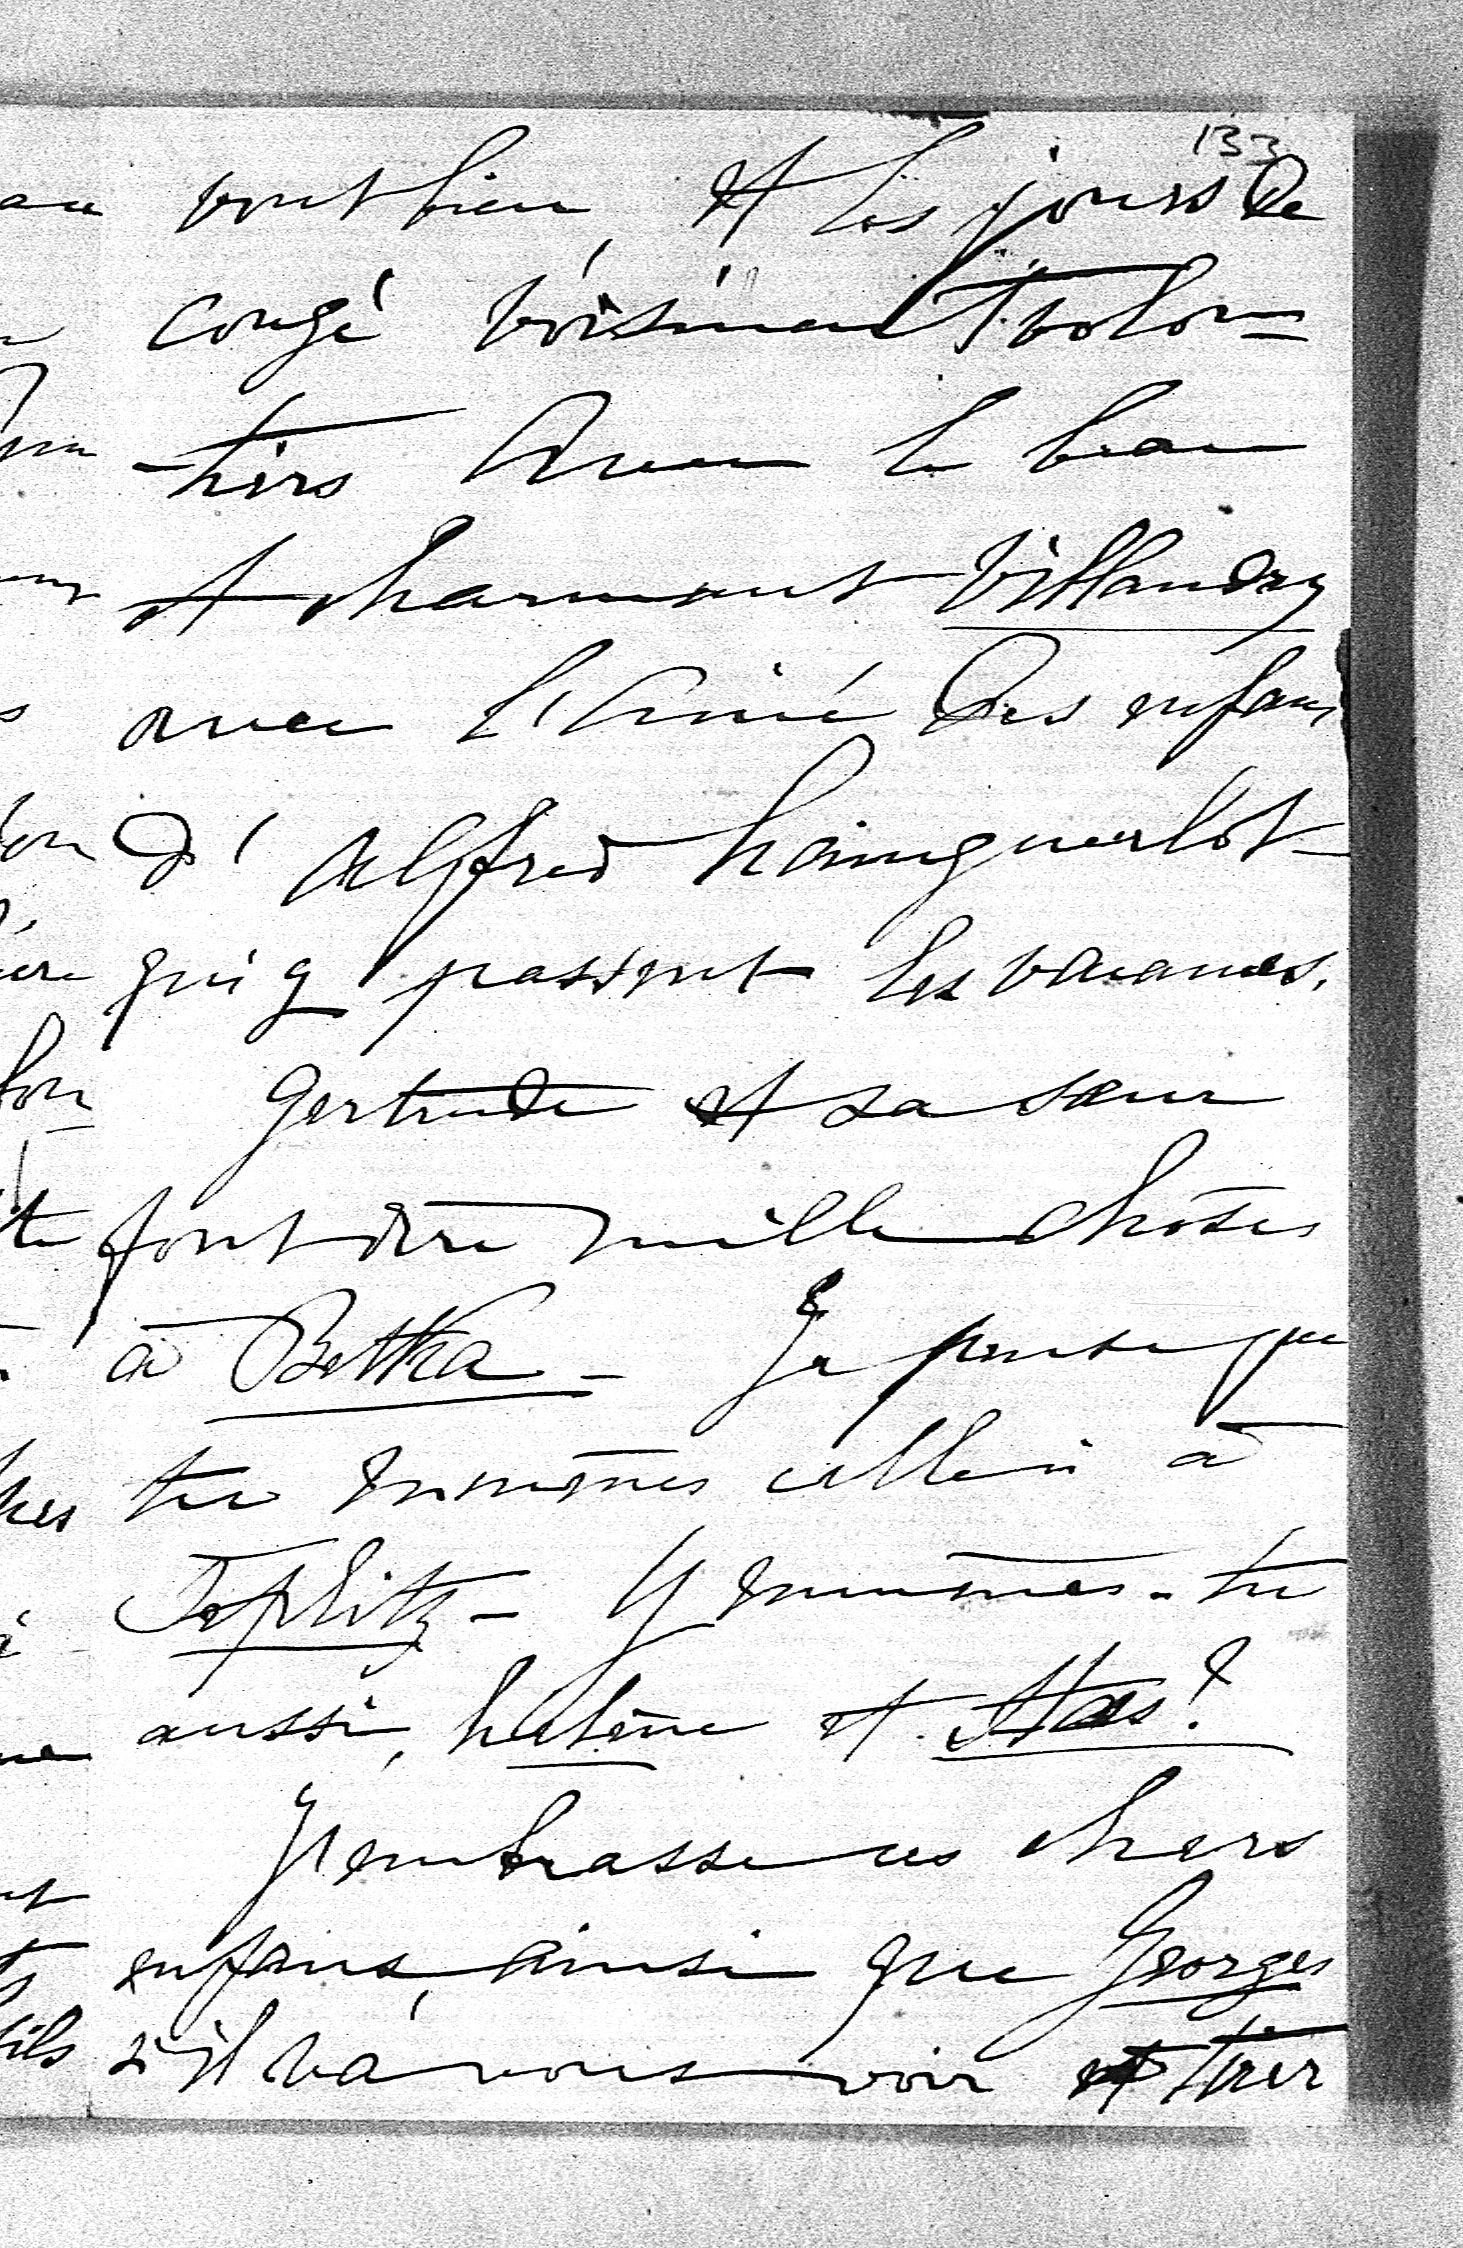 133
vont bien, et les jours de
congé voisinent volon=
-tiers avec le beau
et charmant Villandry
avec l'ainé des enfans
d'Alfred hainguerlot
qui y passent les vacances.
Gertrude et sa sœur
font dire mille choses
à Betka - Je pense que
tu emmènes celle-ci à
Töplitz - Y emmènes-tu
aussi, helène et Stas?
J'embrasse ces chers
enfans, ainsi que Georges
s'il va vous voir et